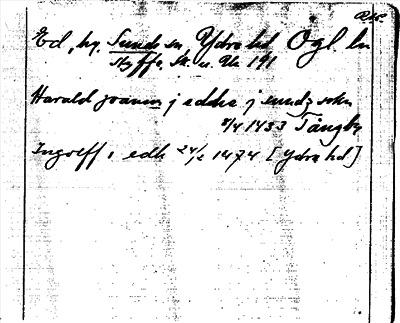 Ed, hg, Sunds sn, Ydre hd Ögl. ln
Styffe, Sk. u. U. 191
Harald joansson j eddhe j sundz sokn
8/4 1433 Tängby
Ingolff i edh 24/2 1474 [Ydre hd]